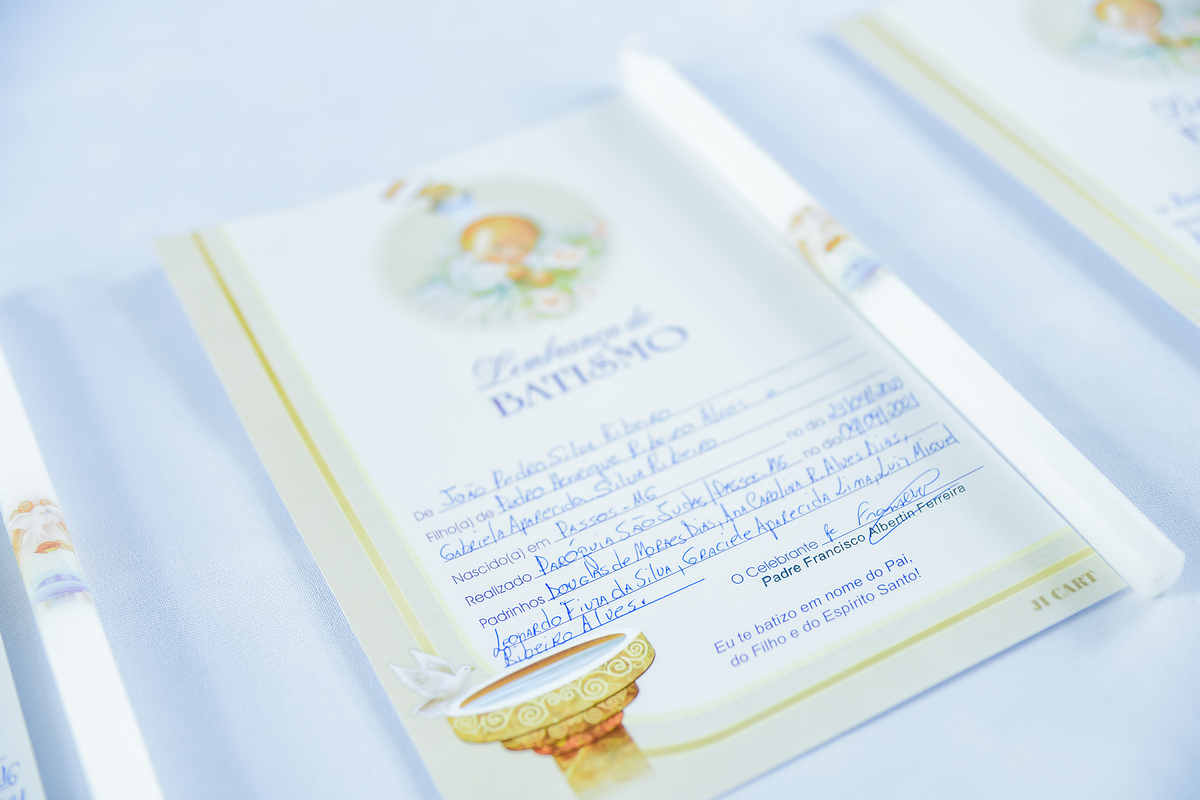 Lembrança de
BATISMO
De João Pedro Silva Ribeiro
Filho(a) de Pedro Henrique Ribeiro Alves e
Gabriela Aparecida Silva Ribeiro.
Nascido(a) em Passos - MG no dia
Realizado Paróquia São Judas / Passos MG no dia 09/09/2021
Padrinhos Douglas de Moraes Dias, Ana Carolina R. Alves Dias,
Leonardo Fiuza da Silva, Graciele Aparecida Lima, Luiz Miguel
Ribeiro Alves.
O Celebrante
Padre Francisco Albertin Ferreira
Eu te batizo em nome do Pai,
do Filho e do Espírito Santo!
JI CART